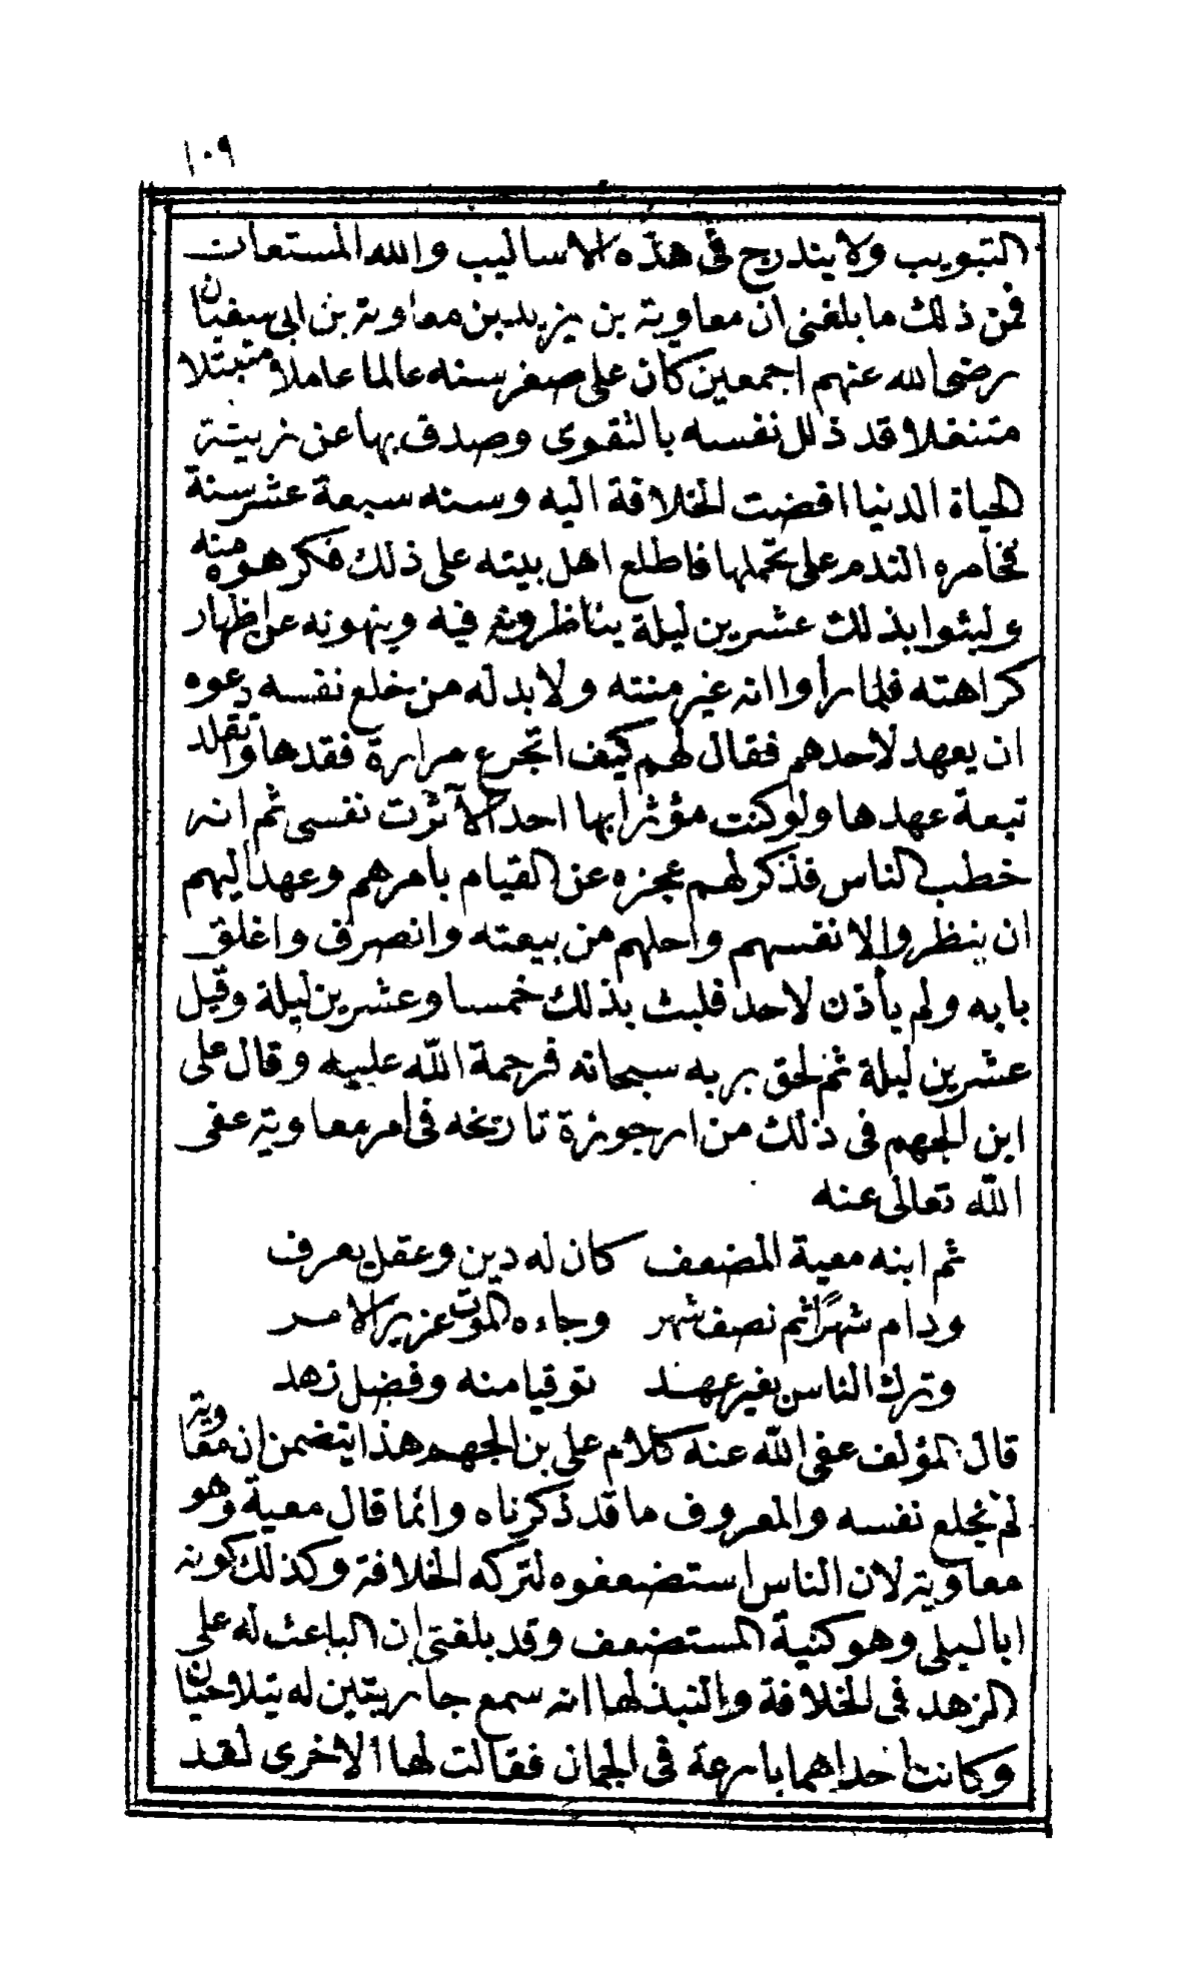 ١٠٩
التبويب ولا يندرج فى هذه الاساليب والله المستعان
فمن ذلك ما بلغنى ان معاوية بن يزيد بن معاوية بن ابى سفيان
رضى الله عنهم اجمعين كان على صغر سنه عالما عاملا متبتلا
متنفلا قد ذلل نفسه بالتقوى وصدف بها عن زينة
الحياة الدنيا افضت الخلافة اليه وسنه سبعة عشر سنة
فخامره الندم على تحملها فاطلع اهل بيته على ذلك فكرهوه منه
ولبثوا بذلك عشرين ليلة يناظرونه فيه وينهونه عن اظهار
كراهته فلما رأوا انه غير منته ولا بد له من خلع نفسه دعوه
ان يعهد لاحدهم فقال لهم كيف اتجرع مرارة فقدها واتقلد
تبعة عهدها ولو كنت مؤثرا بها احدا لآثرت نفسى ثم انه
خطب الناس فذكر لهم عجزه عن القيام بامرهم وعهد اليهم
ان ينظروا لانفسهم واحلهم من بيعته وانصرف واغلق
بابه ولم يأذن لاحد فلبث بذلك خمسا وعشرين ليلة وقيل
عشرين ليلة ثم لحق بربه سبحانه فرحمة الله عليه وقال على
ابن الجهم فى ذلك من ارجوزة تاريخه فى امر معاوية عفى
الله تعالى عنه
ثم ابنه معية المضعف كان له دين وعقل يعرف
ودام شهرا ثم نصف شهر وجاءه الموت عزيز الامر
وترك الناس بغير عهد توقيا منه وفضل زهد
قال المؤلف عفى الله عنه كلام على بن الجهم هذا يتضمن ان معاوية
لم يخلع نفسه والمعروف ما قد ذكرناه وانما قال معية وهو
معاوية لان الناس استضعفوه لتركه الخلافة وكذلك كونه
ابا ليلى وهو كنية المستضعف وقد بلغنى ان الباعث له على
الزهد فى الخلافة والنبذ لها انه سمع جاريتين له يتلاحيان
وكانت احداهما بارعة فى الجمال فقالت لها الاخرى لقد